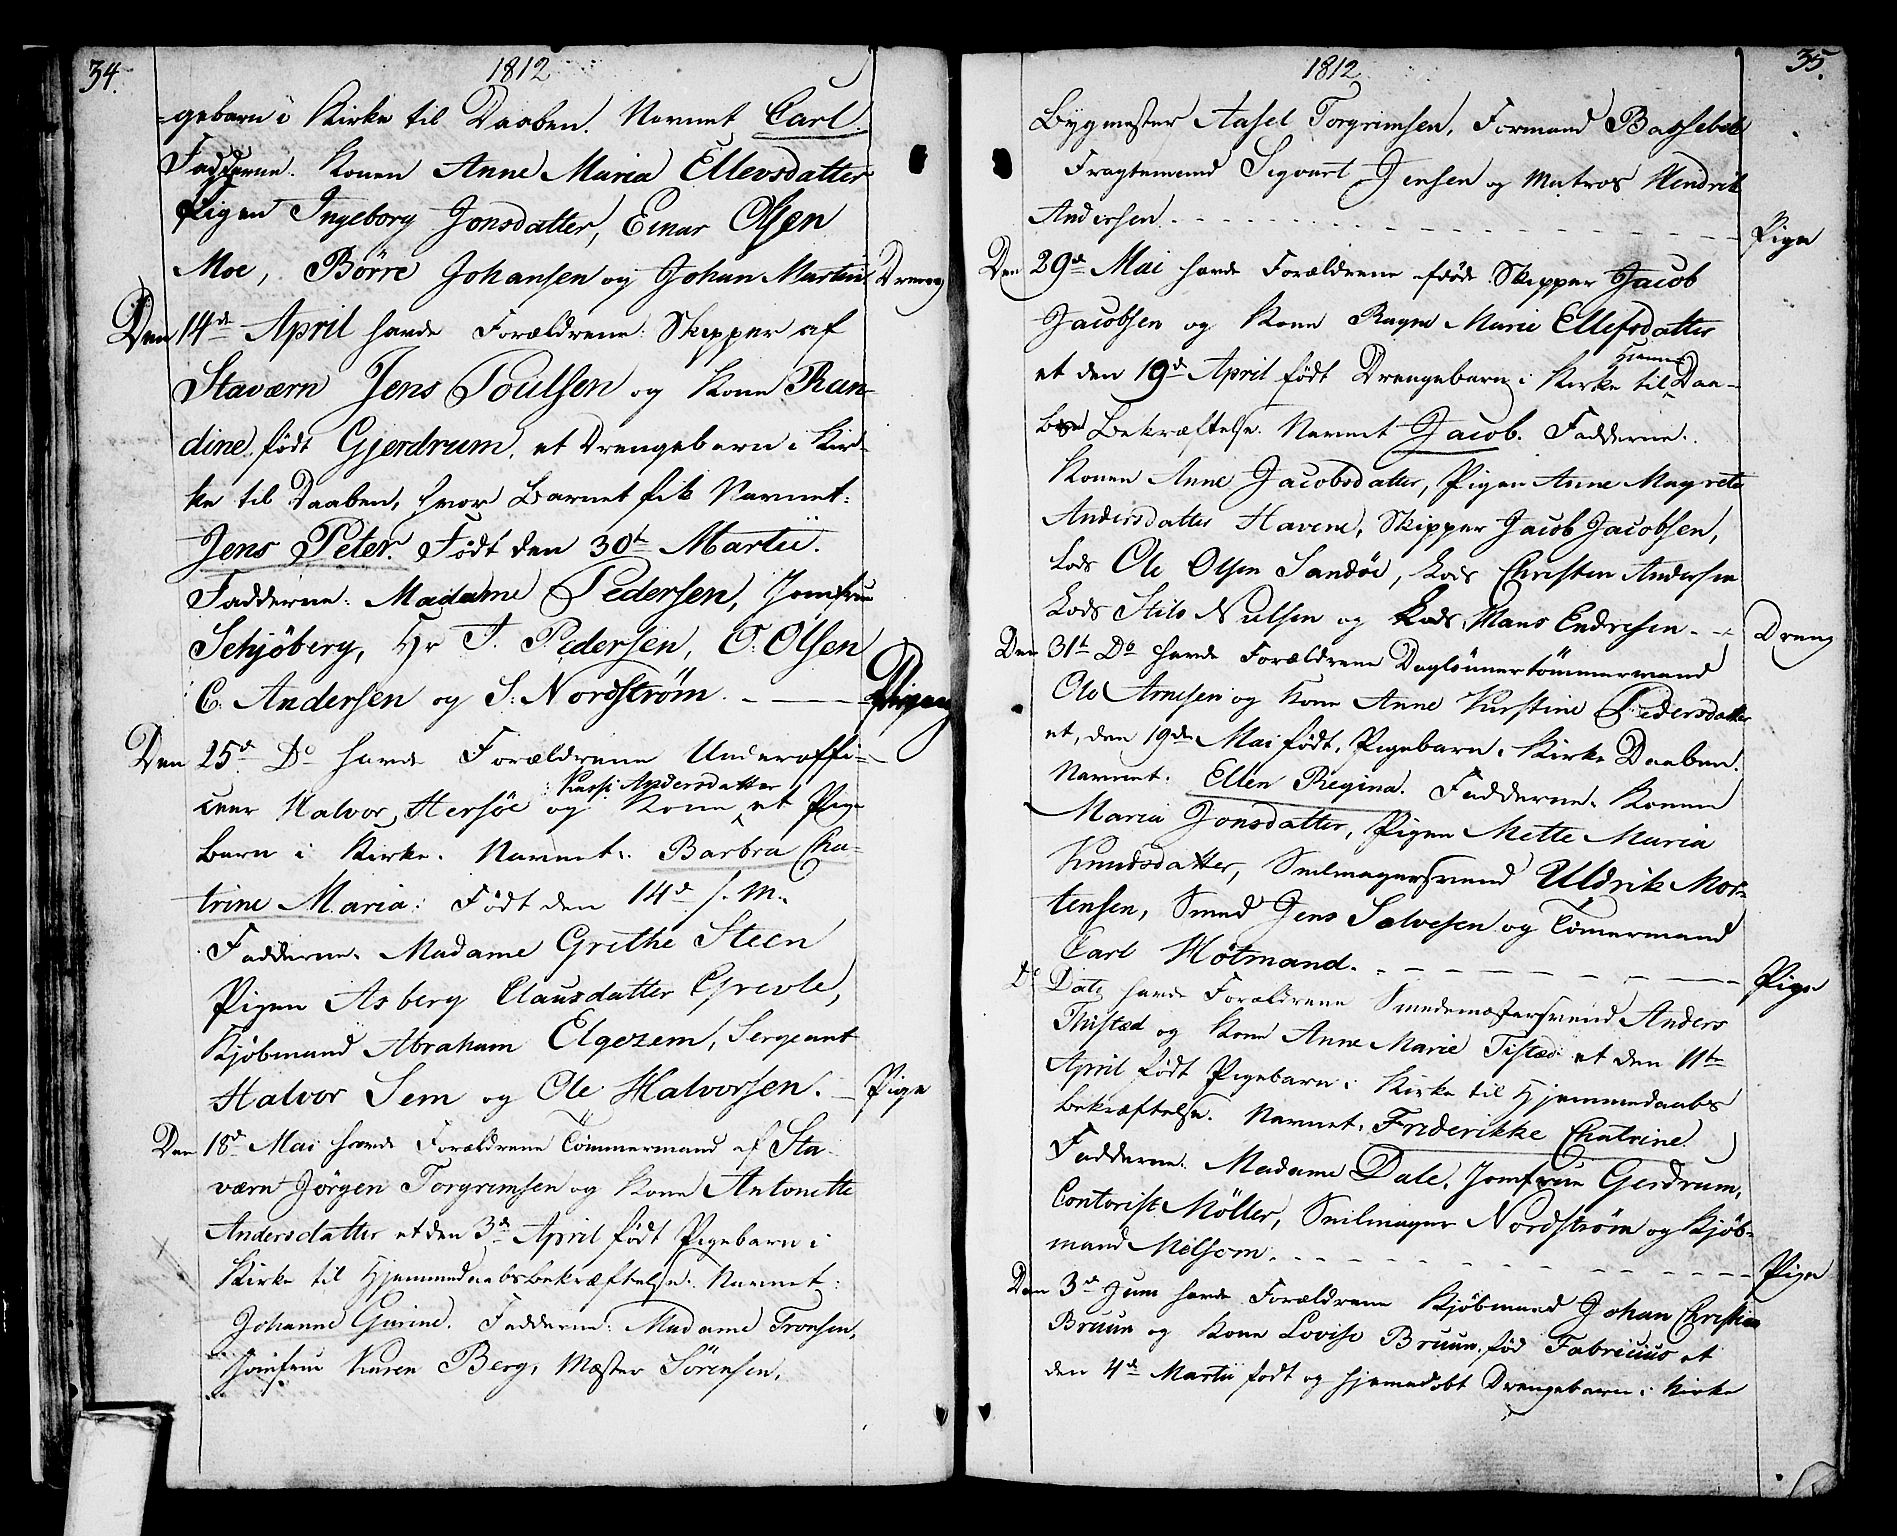 34.
1812
=gebarn i Kirke til Daaben. Navnet Carl.
Fadderne. Konen Anne Maria Ellevsdatter
Pigen Ingeborg Jonsdatter, Einar Olsen
Moe, Börre Johansen og Johan Martin. Dreng
Den 14de April havde Forældrene: Skipper af
Staværn Jens Poulsen og Kone Ran-
dine, født Gjerdrum, et Drengebarn i Kir-
ke til Daaben, hvor Barnet fik Navnet:
Jens Peter. Født den 30te Martii.
Fadderne: Madame Pedersen, Jomfrue
Schjöberg, Hr T. Pedersen, O. Olsen
C. Andersen og S: Nordström.
Den 25de Do havde Forældrene Underoffi-
: Kassi Andersdatter
ceer Halvor Hersöe og Kone et Pige
Barn i Kirke. Navnet: Barbra Cha-
trine Maria: Født den 14de s. M.
Fadderne: Madame Grethe Steen
Pigen Asberg Clausdatter Grevle,
Kjöbmand Abraham Elgezem, Sergeant
Halvor Sem og Ole Halvorsen. Pige
Den 18de Mai havde Forældrene Tömmermand af Sta-
værn Jörgen Torgrimsen og Kone Antonette
Andersdatter et den 3de April født Pigebarn i
Kirke til Hjemmedaabsbekræftelse. Navnet:
Johanne Gurine. Fadderne: Madame Tronsen,
Jomfrue Karen Berg, Mæster Sörensen,
35.
1812
Bygmester Aasel Torgrimsen, Formand
Fragtemand Sigvart Jensen og Matros Hendrik
Andersen. Pige
Den 29de Mai havde Forældrene Skipper Jacob
Jacobsen og Kone Ragne Marie Ellefsdatter
Hjemme
et den 19de April födt Drengebarn i Kirke til Daa-
Bekræftelse. Navnet Jacob. Fadderne.
Konen Anne Jacobsdatter, Pigen Anne Magrete
Andersdatter Havene, Skipper Jacob Jacobsen,
Lods Ole Olsen Sandöe, Lods Christen Andersen
Lods Nielsen og Lods Hans Endresen. Dreng
Den 31te Do havde Forældrene Daglönnertömmermand
Ole Arnesen og Kone Anne Kirstine Pedersdatter
et, den 19de Mai født, Pigebarn i Kirke Daaben.
Navnet. Ellen Regina. Fadderne. Konen
Maria Jonsdatter, Pigen Mette Maria
Knudsdatter, Seilmagersvend Uldrik Mor-
tensen, Smed Jens Salvesen og Tömermand
Carl Hötmand. Pige
Do Dato havde Forældrene Smedemestersvend Anders
Thistæd og Kone Anne Marie Tistæd et den 11te
April født Pigebarn i Kirke til Hjemmedaabs
bekræftelse. Navnet. Friderikke Chatrine
Fadderne. Madame Dale, Jomfrue Gerdrum,
Contorist Möller, Seilmager Nordström og Kjöb-
mand Melsom. Pige
Den 3de Juni havde Forældrene Kjöbmand Johan Christian
Bruun og Kone Lovise Bruun, föd Fabricius et
den 4de Martii født og hjemedöbt Drengebarn i Kirke